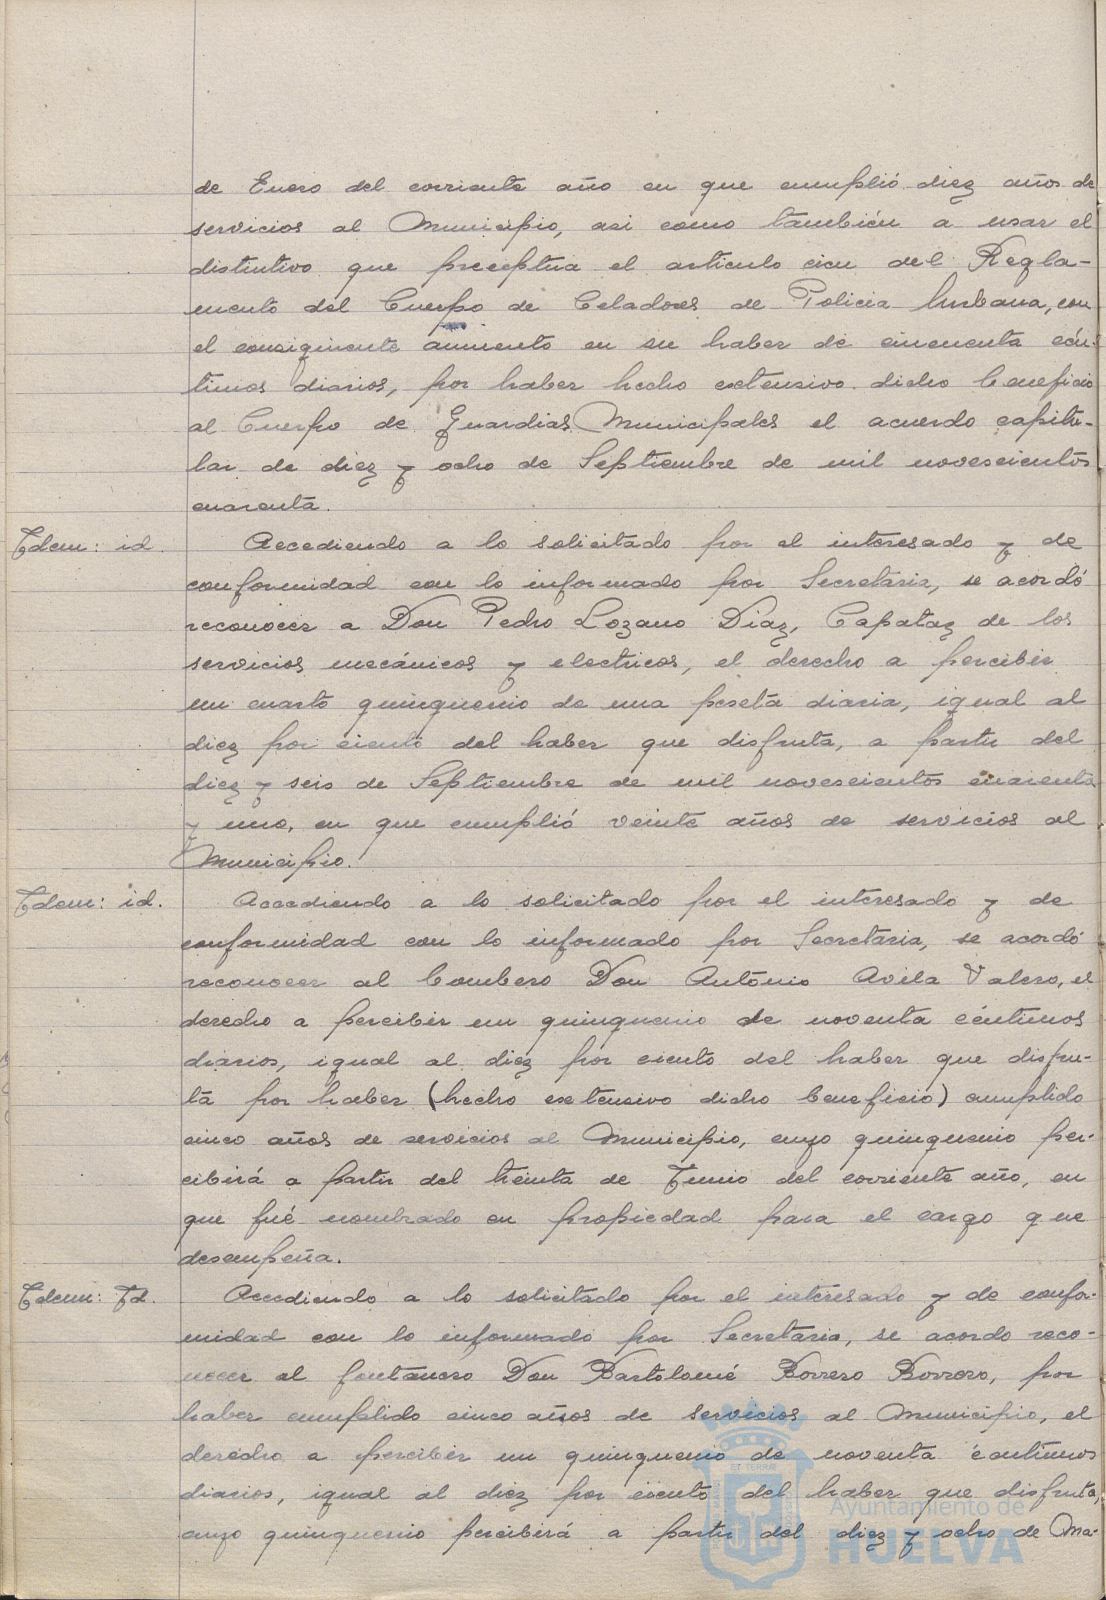 de Enero del corriente año en que cumplió diez años de
servicios al Municipio, asi como tambien a usar el
distintivo que preceptua el articulo cien del Regla-
mento del Cuerpo de Celadores de Policia Urbana, con
el consiguiente aumento en su haber de cincuenta cén-
timos diarios, por haber hecho extensivo dicho beneficio
al Cuerpo de Guardias Municipales el acuerdo capitu-
lar de diez y ocho de Septiembre de mil novescientos
cuarenta.
Idem: id. Accediendo a lo solicitado por el interesado y de
conformidad con lo informado por Secretaria, se acordó
reconocer a Don Pedro Lozano Diaz, Capataz de los
servicios mecánicos y electricos, el derecho a percibir
un cuarto quinquenio de una peseta diaria, igual al
diez por ciento del haber que disfruta, a partir del
diez y seis de Septiembre de mil novescientos cuarenta
y uno, en que cumplió veinte años de servicios al
Municipio.
Idem: id. Accediendo a lo solicitado por el interesado y de
conformidad con lo informado por Secretaria, se acordó
reconocer al bombero Don António Avila Valero, el
derecho a percibir un quinquenio de noventa céntimos
diarios, igual al diez por ciento del haber que disfru-
ta por haber (hecho extensivo dicho beneficio) cumplido
cinco años de servicios al Municipio, cuyo quinquenio per-
cibirá a partir del treinta de Junio del corriente año, en
que fué nombrado en propiedad para el cargo que
desempeña.
Idem: Id. Accediendo a lo solicitado por el interesado y de confor-
midad con lo informado por Secretaria, se acordo reco-
nocer al fontanero Don Bartolomé Borrero Borrero, por
haber cumplido cinco años de servicios al Municipio, el
derecho a percibir un quinquenio de noventa céntimos
diarios, igual al diez por ciento del haber que disfruta,
cuyo quinquenio percibirá a partir del diez y ocho de Ma-
Ayuntamiento de
HUELVA